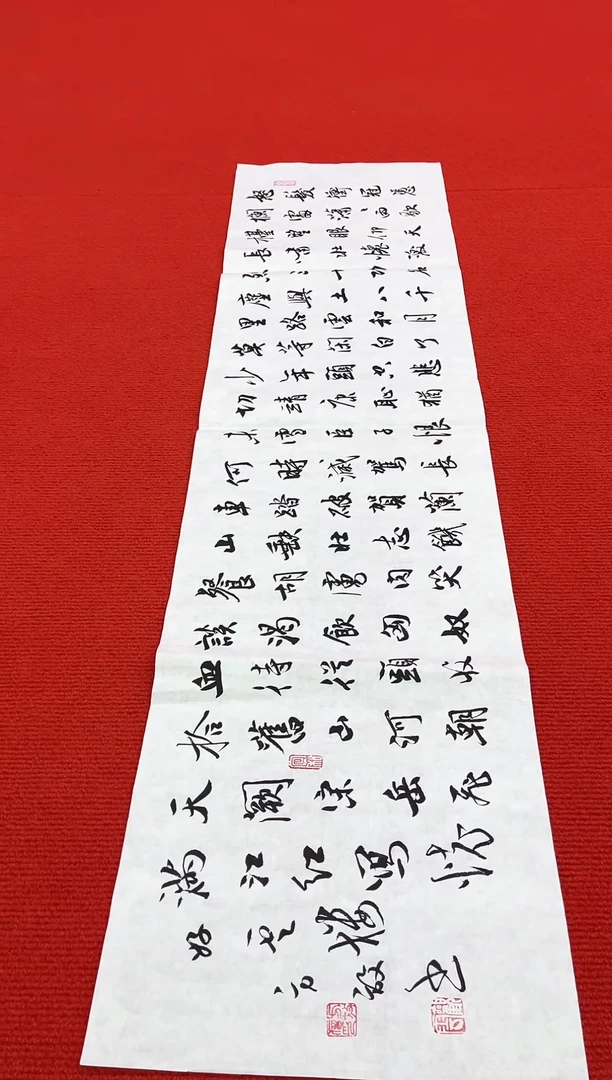 怒髮衝冠憑
欄處瀟、雨歇
檯望眼仰天
長嘯壯懷激
烈三十功名
塵與土八千
里路雲和月
莫等閑白了
少年頭空悲
切靖康恥猶
未雪臣子恨
何時滅駕長
車踏破賀蘭
山缺壯志饑
餐胡虜肉笑
談渴飲匈奴
血待從頭收
拾舊山河朝
天闕宋岳飛
滿江紅寫懷
好樓
方毅書